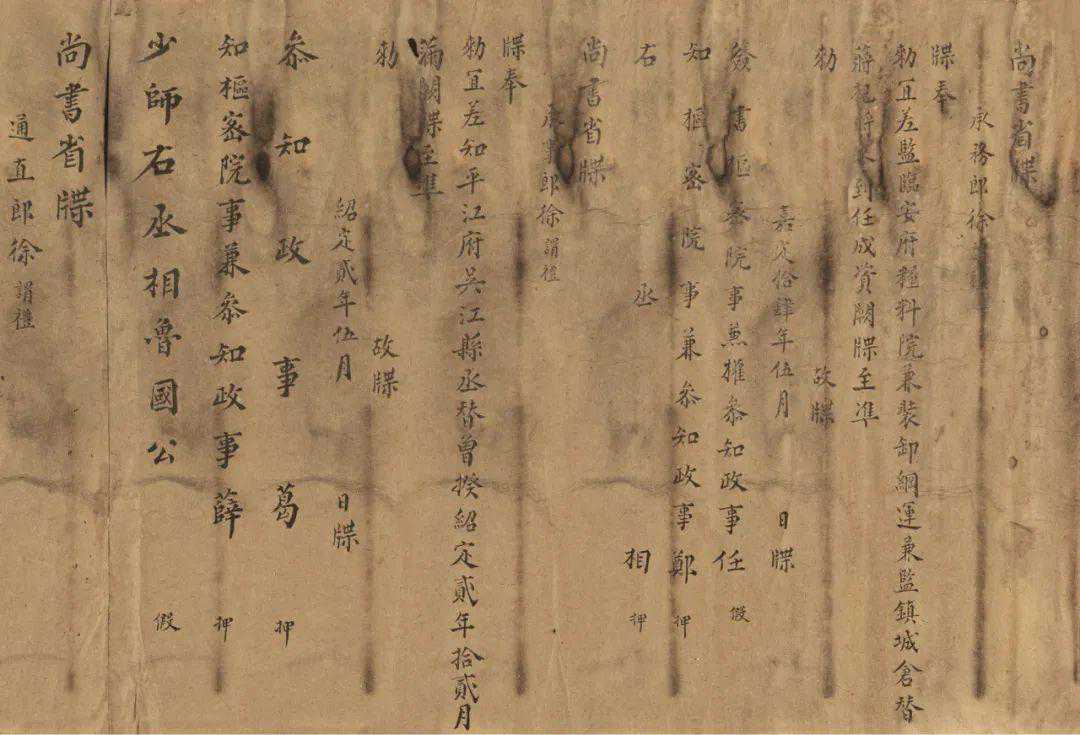 尚書省牒
承務郎徐
牒奉
勑冝差監臨安府糧料院兼裝卸綱運兼監鎮城倉替
蔣 到任成資闕牒至準
勑 故牒
嘉定拾肆年伍月 日牒
簽書樞密院事兼權叅知政事任 假
知樞密院事兼叅知政事鄭 押
右丞相 押
尚書省牒
承事郎徐謂禮
牒奉
勑冝差知平江府吳江縣丞替曾揆紹定貳年拾貳月
滿闕牒至準
勑 故牒
紹定貳年伍月 日牒
叅知政事葛 押
知樞密院事兼叅知政事薛 押
少師右丞相魯國公 假
尚書省牒
通直郎徐謂禮